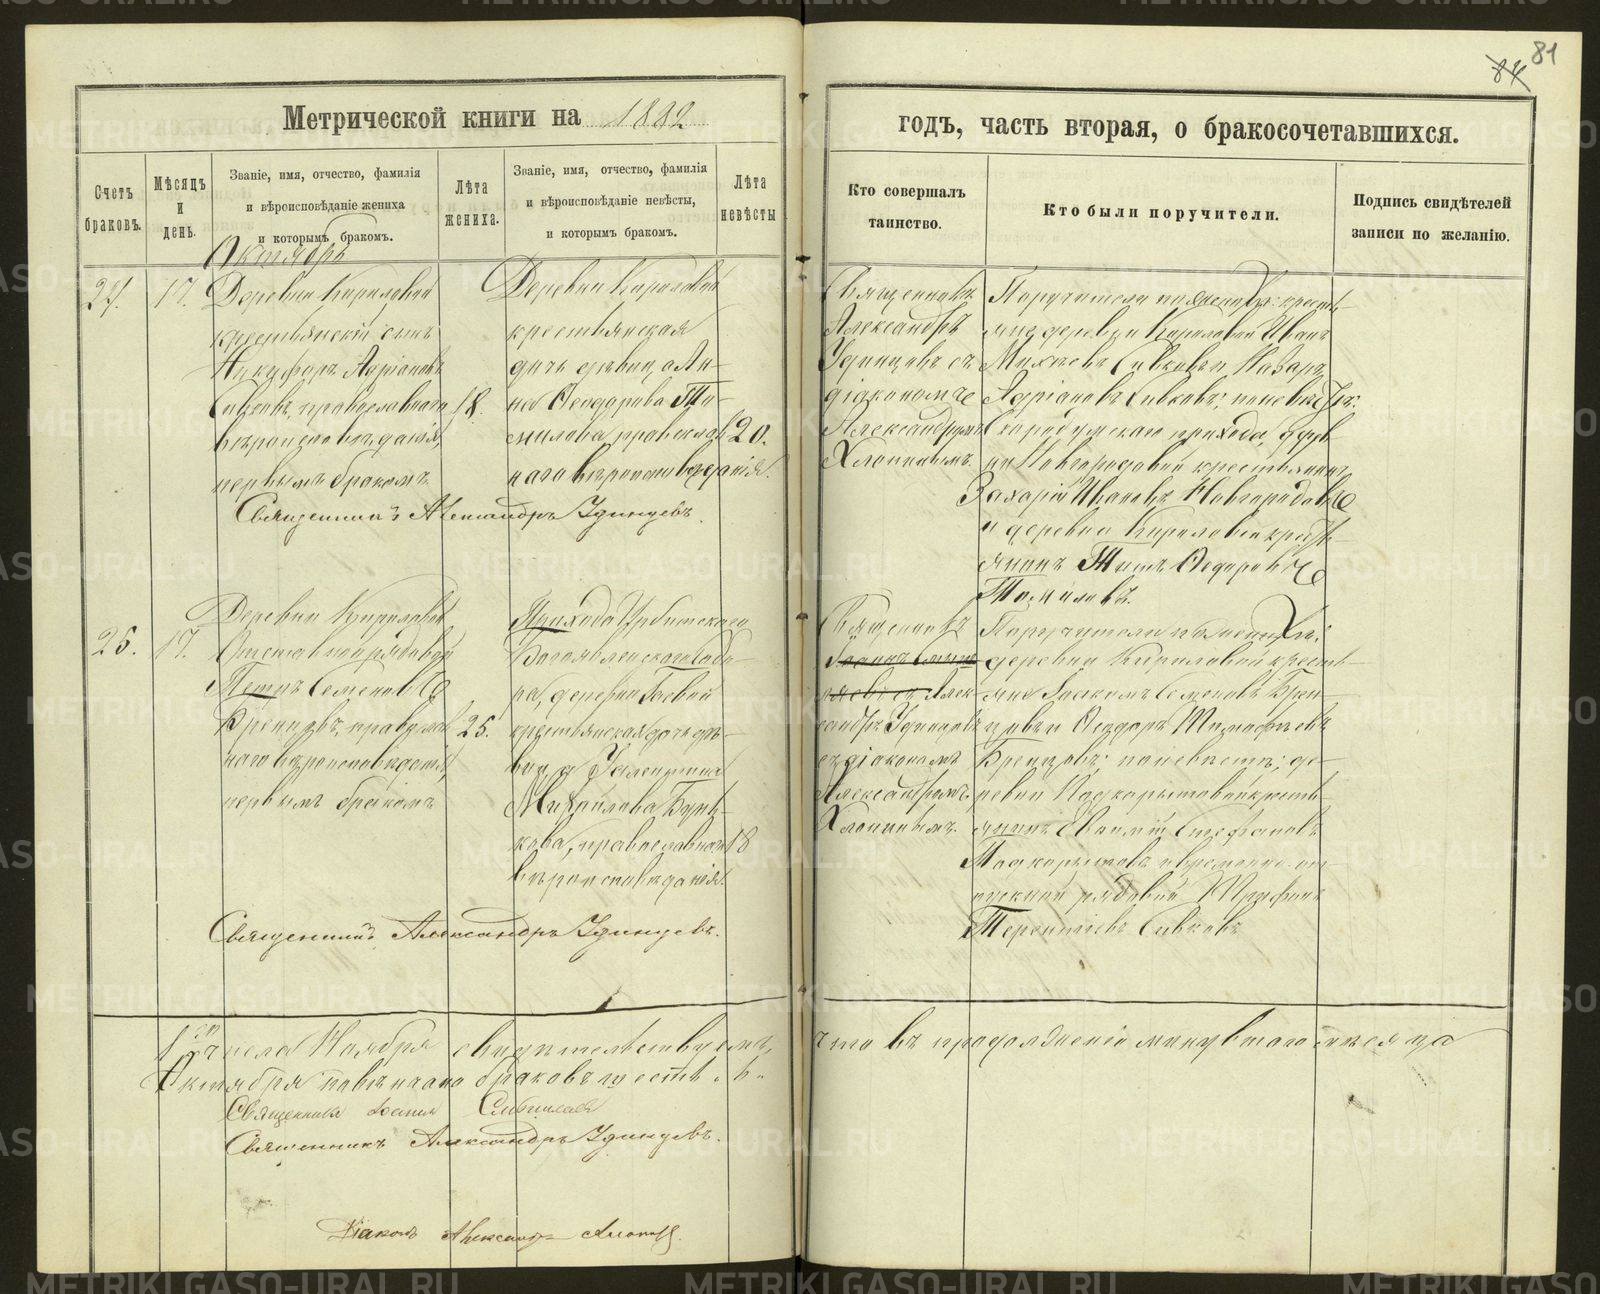 81
84
Метрической книги на 1882
годъ, часть вторая, о бракосочетавшихся.
Счетъ браковъ.
Мѣсяцъ и день.
Званіе, имя, отчество, фамилія
и вѣроисповѣданіе жениха
и которымъ бракомъ.
Лѣта жениха.
Званіе, имя, отчество, фамилія
и вѣроисповѣданіе невѣсты,
и которымъ бракомъ.
Лѣта невѣсты
Кто совершалъ
таинство.
Кто были поручители.
Подпись свидѣтелей
записи по желанію.
Октябрь
17.
Деревни Кириловой
крестьянскій сынъ
Никифоръ Адріановъ
Сивковъ, православнаго
вѣроисповѣданія,
первымъ бракомъ
18.
Деревни Кириловой
крестьянская
дочь дѣвица Ан-
на Ѳеодорова То-
милова, православ
наго вѣроисповѣданія.
20.
Священникъ
Александръ
Удинцевъ съ
діакономъ
Александромъ
Хлопинымъ.
Поручители по женихѣ: кресть-
яне деревни Кириловой Иванъ
Сивковъ и Назаръ
Адріановъ Сивковъ; по невѣстѣ:
прихода, дерев
ни Новгородовой крестьянинъ
Захарій Ивановъ Новгородовъ
и деревни Кириловой крестъ
янинъ Титъ Ѳедоровъ
Томиловъ.
Священникъ Александръ Удинцевъ.
25.
17.
Деревни Кириловой
Отставной рядовой
Петръ Семеновъ
православ
наго вѣроисповѣданія,
первымъ бракомъ
25.
Прихода Ирбитскаго
Богоявленскаго Собо-
ра, деревни
крестьянская дочь дѣ-
вица
Михайлова
православнаго
вѣроисповѣданія.
18
Священникъ
Іоаннъ
Алек
сандръ Удинцевъ
съ діакономъ
Александромъ
Хлопинымъ.
Поручители по женихѣ:
деревни Кириловой кресть-
яне Семеновъ
и Ѳедоръ Тимофѣевъ
по невѣстѣ: де-
ревни Подкорытовой кресть-
янинъ Стефановъ
Подкорытовъ и временно-от-
пускной рядовой Трифонъ
Терентіевъ Сивковъ
Священникъ Александръ Удинцевъ.
1го числа Ноября свидѣтельствуемъ, что въ продолженіи минувшаго мѣсяца
Октября повѣнчано браковъ шесть „6„
Священникъ
Священникъ Александръ Удинцевъ.
Діаконъ Александръ Хлопинъ.